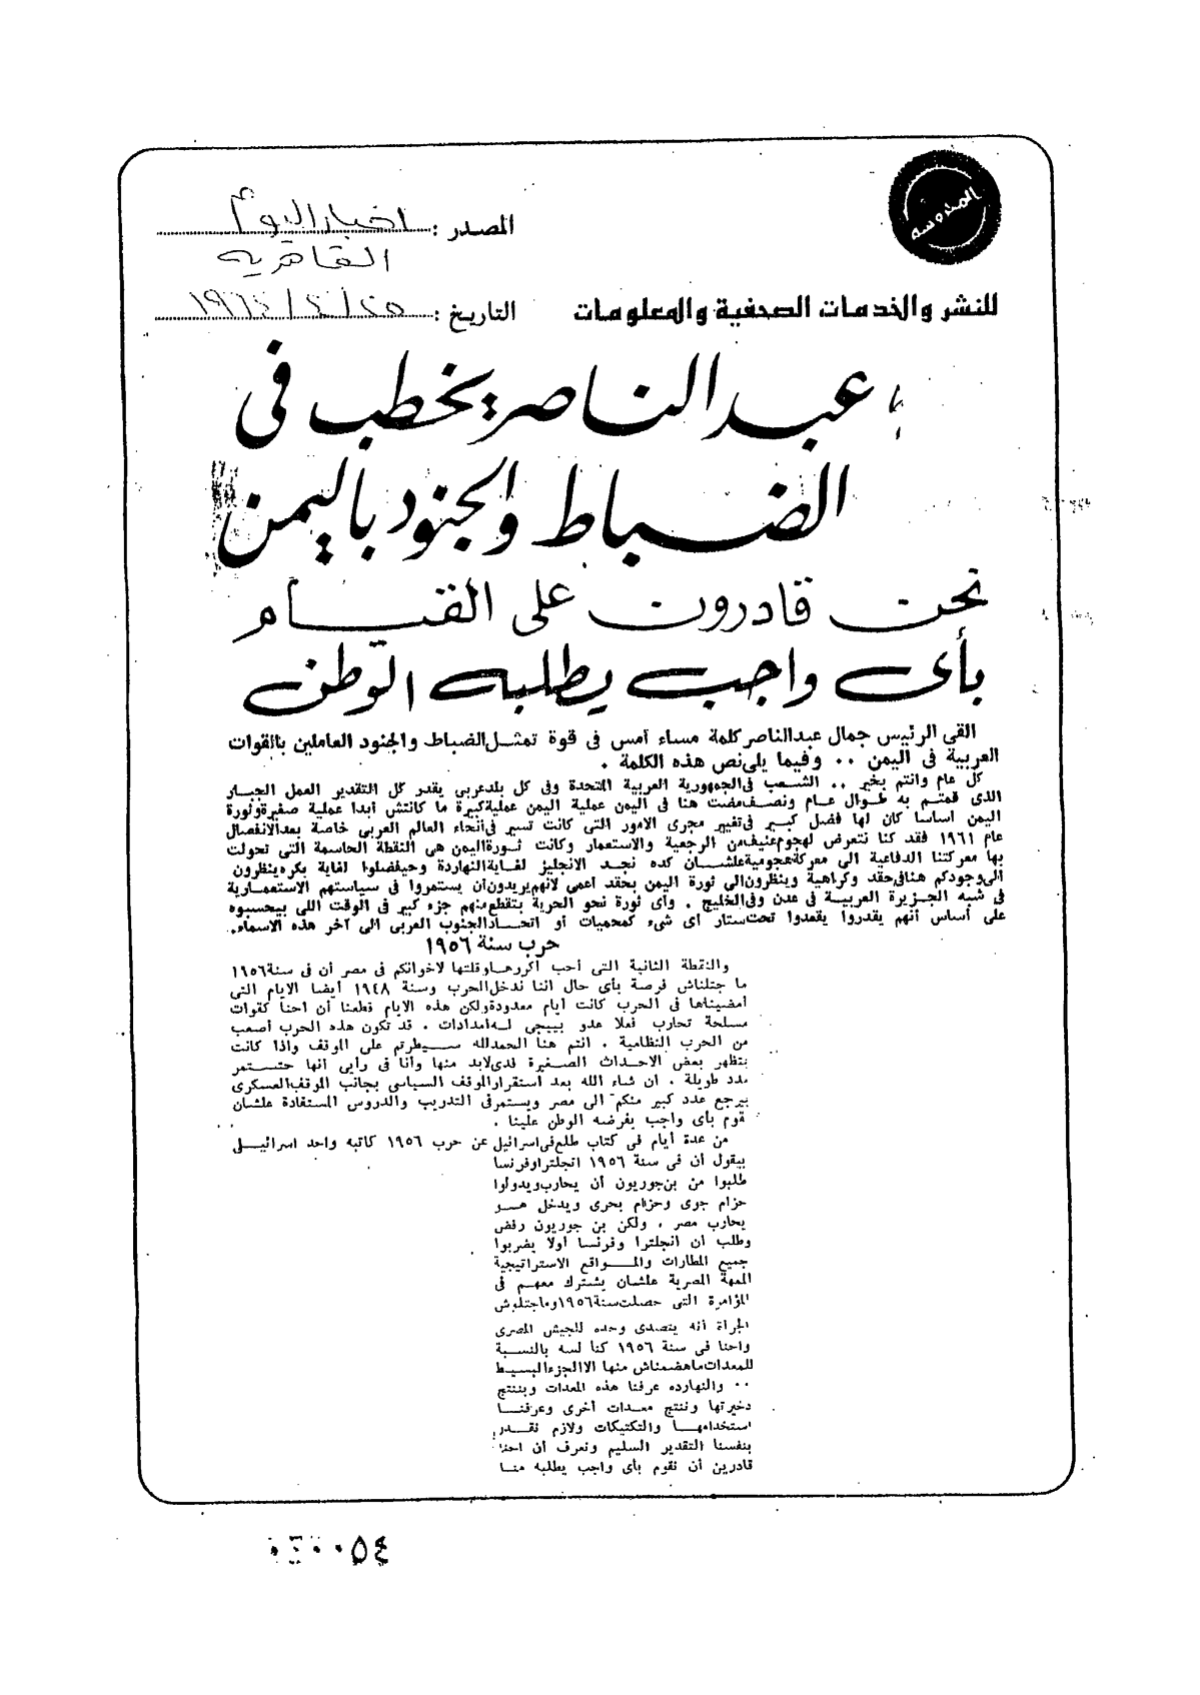 المحروسه
المصدر : اخبار اليوم
القاهريه
للنشر والخدمات الصحفية والمعلومات
التاريخ : ٢٥/٤/١٩٦٤
عبد الناصر يخطب فى
الضباط والجنود باليمن
نحن قادرون على القيام
بأى واجب يطلبه الوطن
القى الرئيس جمال عبدالناصر كلمة مساء أمس فى قوة تمثل الضباط والجنود العاملين بالقوات
العربية فى اليمن .. وفيما يلى نص هذه الكلمة .
كل عام وانتم بخير .. الشعب فى الجمهورية العربية المتحدة وفى كل بلد عربى يقدر كل التقدير العمل الجبار
الذى قمتم به طوال عام ونصف مضت هنا فى اليمن عملية اليمن عملية كبيرة ما كانتش أبدا عملية صغيرة وثورة
اليمن اساسا كان لها فضل كبير فى تغيير مجرى الامور التى كانت تسير فى أنحاء العالم العربى خاصة بعد الانفصال
عام ١٩٦١ فقد كنا نتعرض لهجوم عنيف من الرجعية والاستعمار وكانت ثورة اليمن هى النقطة الحاسمة التى تحولت
بها معركتنا الدفاعية الى معركة هجومية علشان كده نجد الانجليز لغاية النهاردة وحيفضلوا لغاية بكره ينظرون
الى وجودكم هنا فى حقد وكراهية وينظرون الى ثورة اليمن بحقد اعمى لانهم يريدون أن يستمروا فى سياستهم الاستعمارية
فى شبه الجزيرة العربية فى عدن وفى الخليج . وأى ثورة نحو الحرية بتقطع منهم جزء كبير فى الوقت اللى بيحسبوه
على أساس أنهم يقدروا يقعدوا تحت ستار أى شىء كمحميات أو اتحاد الجنوب العربى الى آخر هذه الاسماء.
حرب سنة ١٩٥٦
والنقطة الثانية التى أحب أكررها وقلتها لاخوانكم فى مصر أن فى سنة ١٩٥٦
ما جتلناش فرصة بأى حال اننا ندخل الحرب وسنة ١٩٤٨ أيضا الايام التى
أمضيناها فى الحرب كانت أيام معدودة ولكن هذه الايام قطعنا أن احنا كقوات
مسلحة تحارب فعلا عدو بييجى له امدادات . قد تكون هذه الحرب أصعب
من الحرب النظامية . انتم هنا الحمدلله سيطرتم على الموقف واذا كانت
بتظهر بعض الاحداث الصغيرة فدى لابد منها وأنا فى رأيى انها حتستمر
مدد طويلة . ان شاء الله بعد استقرار الموقف السياسى بجانب الموقف العسكرى
بيرجع عدد كبير منكم الى مصر ويستمر فى التدريب والدروس المستفادة علشان
نقوم بأى واجب يفرضه الوطن علينا .
من عدة أيام فى كتاب طلع فى اسرائيل عن حرب ١٩٥٦ كاتبه واحد اسرائيلى
بيقول أن فى سنة ١٩٥٦ انجلترا وفرنسا
طلبوا من بن جوريون أن يحارب ويدولوا
حزام جوى وحزام بحرى ويدخل هو
يحارب مصر . ولكن بن جوريون رفض
وطلب أن انجلترا وفرنسا أولا يضربوا
جميع المطارات والمواقع الاستراتيجية
المهمة المصرية علشان يشترك معهم فى
المؤامرة التى حصلت سنة ١٩٥٦ وماجتلوش
الجرأة أنه يتصدى وحده للجيش المصرى
واحنا فى سنة ١٩٥٦ كنا لسه بالنسبة
للمعدات ماهضمناش منها الا الجزء البسيط
.. والنهارده عرفنا هذه المعدات وبننتج
ذخيرتها وننتج معدات أخرى وعرفنا
استخدامها والتكتيكات ولازم نقدر
بنفسنا التقدير السليم ونعرف أن احنا
قادرين أن نقوم بأى واجب يطلبه منا